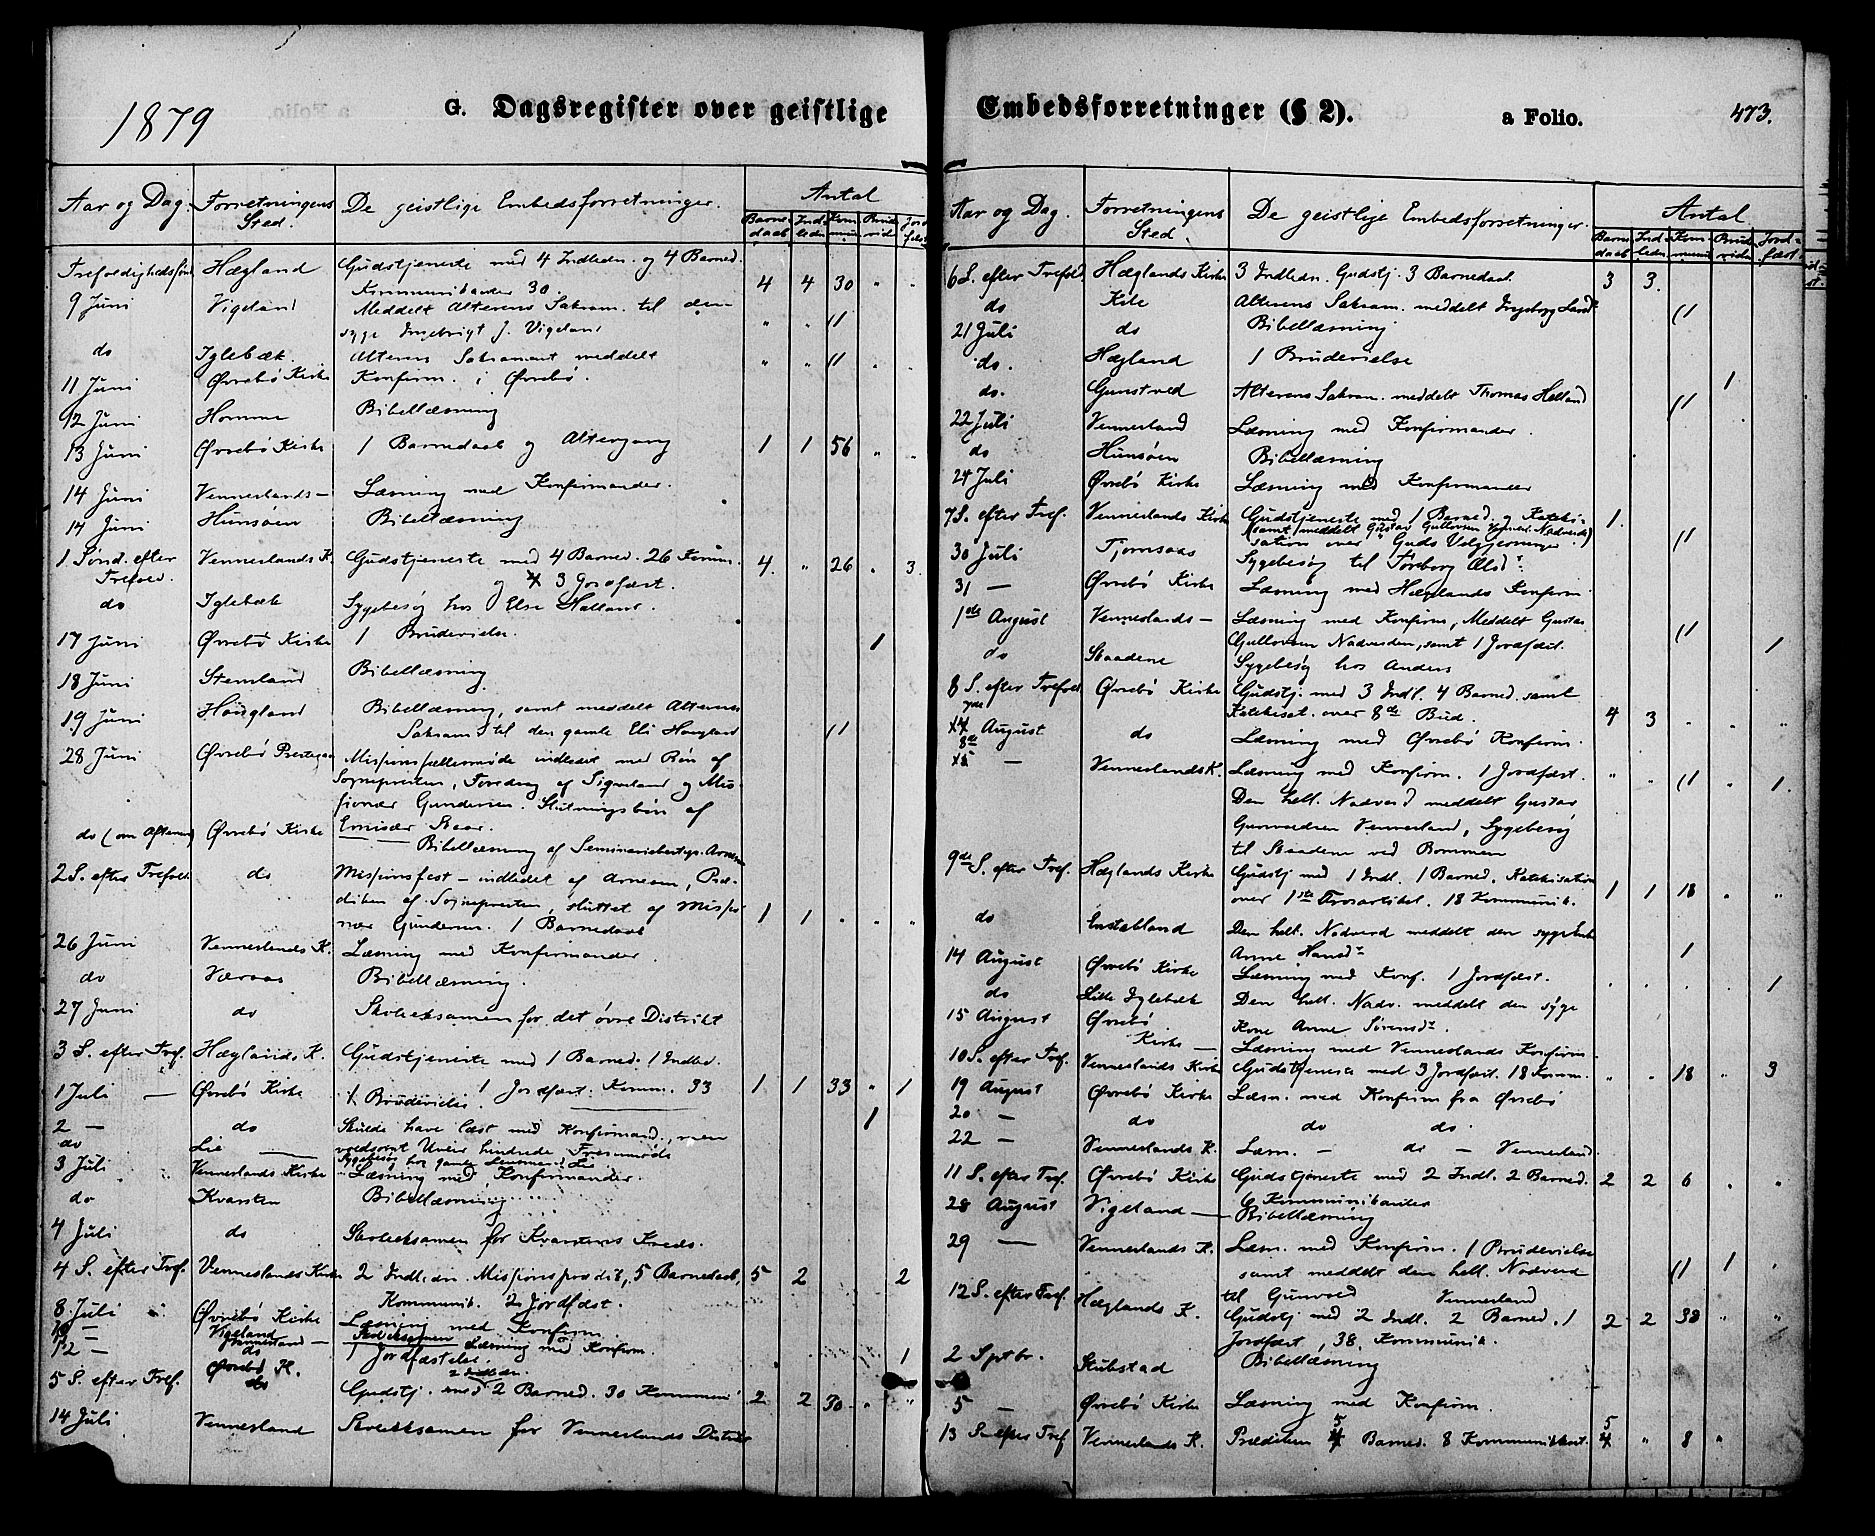 1879
G. Dagsregister over geistlige
Aar og Dag. Forretningens Sted. De geistlige Embedsforretninger. Antal
Barnedaab Indledn Kommun Brudevielse Jordfæst
Trefoldighedsfest Hægland Gudstjeneste med 4 Indledn. og 4 Barned.
Kommunikanter 30. 4 4 30 " "
9 Juni Vigeland Meddelt Alterens Sakram. til den
syge Ingebrigt J. Vigeland " " 1/
do Iglebæk Alterens Sakrament meddelt " " 1/ " "
11 Juni Øvrebø Kirke Konfirm. i Øvrebø.
12 Juni Homme Bibellæsning
13 Juni Øvrebø Kirke 1 Barnedaab og Altergang 1 1 56 " "
14 Juni Venneslands — Læsning med Konfirmander.
14 Juni Hunsøen Bibellæsning
1 Sønd. efter Trefold. Venneslands K. Gudstjeneste med 4 Barned. 26 Komm.
og 3 Jordfæst. 4. " 26 " 3.
do Iglebæk Sygebesøg hos Else Halland.
17 Juni Øvrebø Kirke 1 Brudevielse. 1
18 Juni Stemland Bibellæsning
19 Juni Høugland Bibellæsning, samt meddelt Alterens
Sakram. til den gamle Eli Høugland 1/
28 Juni Øvrebø Prestegaar Missionsfællesmøde indledet med Bøn af
Sognepresten, Foredrag af Signeland og Mis-
sionær Gundersen. Slutningsbøn af
Emisær Staar.
do (om Aftenen) Øvrebø Kirke Bibellæsning af Seminariebestyr. Arnesen
2 S. efter Trefold. do Missionsfest — indledet af Arnesen, Præ-
diken af Sognepresten, sluttet af Missio-
nær Gundersen. 1 Barnedaab 1 1 " " "
26 Juni Venneslands K. Læsning med Konfirmander.
do Væraas Bibellæsning.
27 Juni do Skoleeksamen for det øvre Distrikt
3 S. efter Tref. Hæglands K. Gudstjeneste med 1 Barned. 1 Indled.
1 Jordfæst. Komm. 33 1 1 33 " 1
1 Juli — Øvrebø Kirke 1 Brudevielse. 1
2 — do Skulde have læst med Konfirmand., men
vedvarende Uveir hindrede Fremmøde
do Lie Sygebesøg hos gamle Lensmand Lie
3 Juli Venneslands Kirke Læsning med Konfirmander.
do Kvarsten Bibellæsning
4 Juli do Skoleeksamen for Kvarstens Kreds.
4 S. efter Tref. Venneslands Kirke 2 Indledn. Missionsprædik, 5 Barnedaab, 5 2 2
Kommunik. 2 Jordfæst.
8 Juli Øvrebø Kirke Læsning med Konfirm.
10 — Vigeland Skoleeksamen
Vennesland — Læsning med Konfirm.
12 — do 1 Jordfæstelse. 1
5 S. efter Tref. Øvrebø K. Gudstj. med 2 Indledn. 2 Barned. 30 Kommuni 2 2 30 " "
14 Juli Vennesland Skoleeksamen for Venneslands Distrikt
Embedsforretninger (§ 2). a Folio. 473.
Aar og Dag. Forretningens Sted. De geistlige Embedsforretninger. Antal
Barnedaab Indledn. Kommun Brudevielse Jordfæst
6 S. efter Trefold. Hæglands Kirke 3 Indledn. Gudstj. 3 Barnedaab 3 3.
do Kile Alterens Sakram. meddelt Ingeborg 1/
21 Juli do Bibellæsning
do. Hægland 1 Brudevielse 1
do. Gunstved Alterens Sakram. meddelt Thomas Helland 1/
22 Juli Vennesland Læsning med Konfirmander.
do Hunsøen Bibellæsning
24 Juli Øvrebø Kirke Læsning med Konfirmander
7 S. efter Tref. Venneslands Kirke Gudstjeneste med 1 Barned. og Kateki- 1.
(samt meddelt Gustav Gullovsen Nadverden)
sation over Guds Velgjerninger. 1/
30 Juli Tjomsaas Sygebesøg til Torborg Olsdr
31 — Øvrebø Kirke Læsning med Hæglands Konfirm.
1ste August Venneslands — Læsning med Konfirm, Meddelt Gustav
Gullovsen Nadverden, samt 1 Jordfæst. 1/ 1
do Skaadene Sygebesøg hos Anders
8 S. efter Trefold Øvrebø Kirke Gudstj. med 3 Indl. 4 Barned. samt
Katekisat. over 8de Bud. 4 3 " " "
7de August do Læsning med Øvrebø Konfirm.
8de — Venneslands K. Læsning med Konfirm. 1 Jordfæst. " " 1/ " 1.
Den hell. Nadverd meddelt Gustav
Gunvaldsen Vennesland, Sygebesøg
til Skaadene ved Bommen
9de S. efter Tref. Hæglands Kirke Gudstj med 1 Indl. 1 Barned. Katekisation
over 1ste Trosartikel. 18 Kommunik. 1 1 18 " "
do Eustabland Den hell. Nadverd meddelt den syge
Anne Hansdr 1
14 August Øvrebø Kirke Læsning med Konf. 1 Jordfæst. 1
do Lille Iglebæk Den hell. Nadv. meddelt den syge
Kone Anne Sørensdr.
15 August Øvrebø Kirke — Læsning med Venneslands Konfirm.
10 S. efter Tref. Venneslands Kirke Gudstjeneste med 3 Jordfæst. 18 Komm. " " 18 " 3
19 August Øvrebø Kirke Læsn. med Konfirm fra Øvrebø
20 — do do do.
22 — Venneslands K. Læsn. — do — Vennesland.
11 S. efter Tref. Øvrebø Kirke Gudstjeneste med 2 Indl. 2 Barned. 2 2 6 " "
6 Kommunikanter
28 August Vigeland — Bibellæsning
29 — Venneslands K. Læsn. med Konfirm. 1 Brudevielse
samt meddelt den hell. Nadverd 1/ 1 "
til Gunvold Vennesland
12 S. efter Tref. Hæglands K. Gudstj med 2 Indl. 2 Barned. 1 2 2 38 " "
Jordfæst, 38 Kommunik.
2 Sptbr. Skubstad Bibellæsning
5 — Øvrebø Kirke Læsning med Konfirm.
13 S. efter Tref Venneslands K. Prædiken 5 Barned. 8 Kommunikant. 5 " 8 "